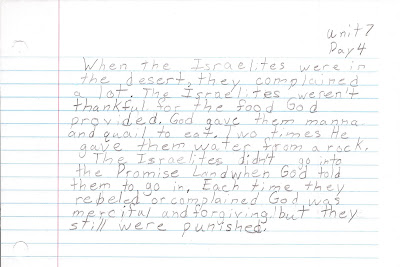 unit 7
Day 4
When the Israelites were in
the desert, they complained
a lot. The Israelites weren't
thankful for the food God
provided. God gave them manna
and quail to eat. Two times He
gave them water from a rock.
The Israelites didn't go into
the Promise Land when God told
them to go in. Each time they
rebeled or complained God was
merciful and forgiving, but they
still were punished.